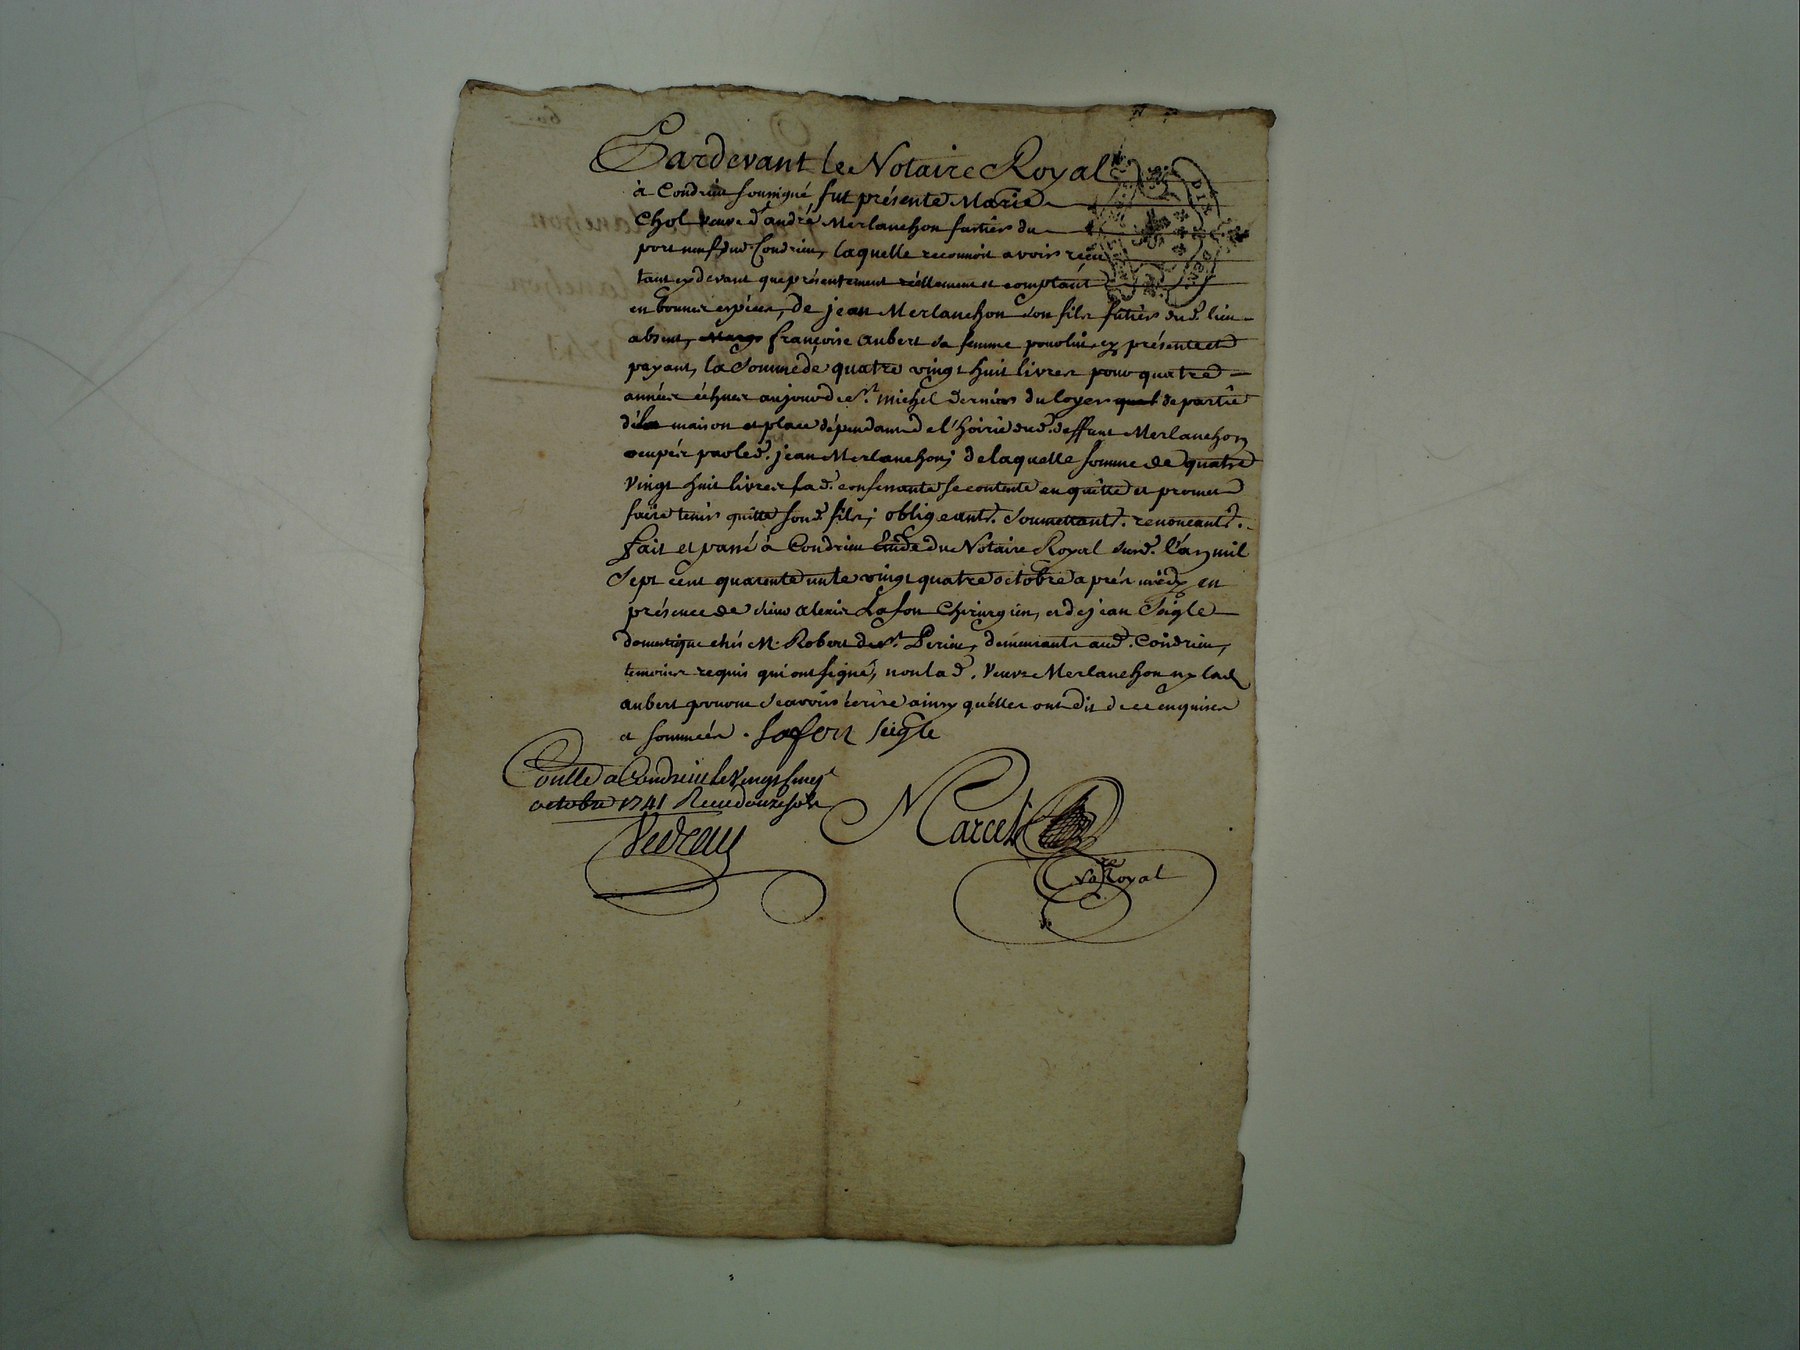 Pardevant le Notaire Royal
à Condrieu soussigné fut présente Marie
Chol veuve d'andré Merlanchon futier du
port neuf dud. Condrieu, laquelle reconnoit avoir reçu
tant cy devant que présentement réellement et comptant
en bonnes espèces, de jean Merlanchon son fils futier dud. lieu
absent, françoise aubert sa femme pour luy cy présente et
payant, la somme de quatre vingt huit livres pour quatre
années échues au jour de St. michel dernier du loyer de partie
de la maison et place dépendant de l'hoirie dud. deffunt Merlanchon
occupée par led. jean Merlanchon; de laquelle somme de quatre
vingt huit livres lad. confessante se contente en quitte et promet
faire tenir quitte sond. fils; obligeant. soumettant. renonceant.
fait et passé à Condrieu étude du Notaire Royal susd. l'an mil
sept cent quarente un le vingt quatre octobre après midy en
présence de sieur alexis Lafon Chirurgien, et de jean Seigle
domestique chés M. Robert de St. Perieu, demeurants aud. Condrieu,
temoins requis qui ont signé, non lad. veuve Merlanchon ny lad.
aubert pour ne sçavoir écrire ainsy qu'elles ont dit de ce enquises
et sommées. Lafon Seigle
Conllé a Condrieu le vingt sinq
octobre 1741 Receu douze sols
Marcet
No.re Royal